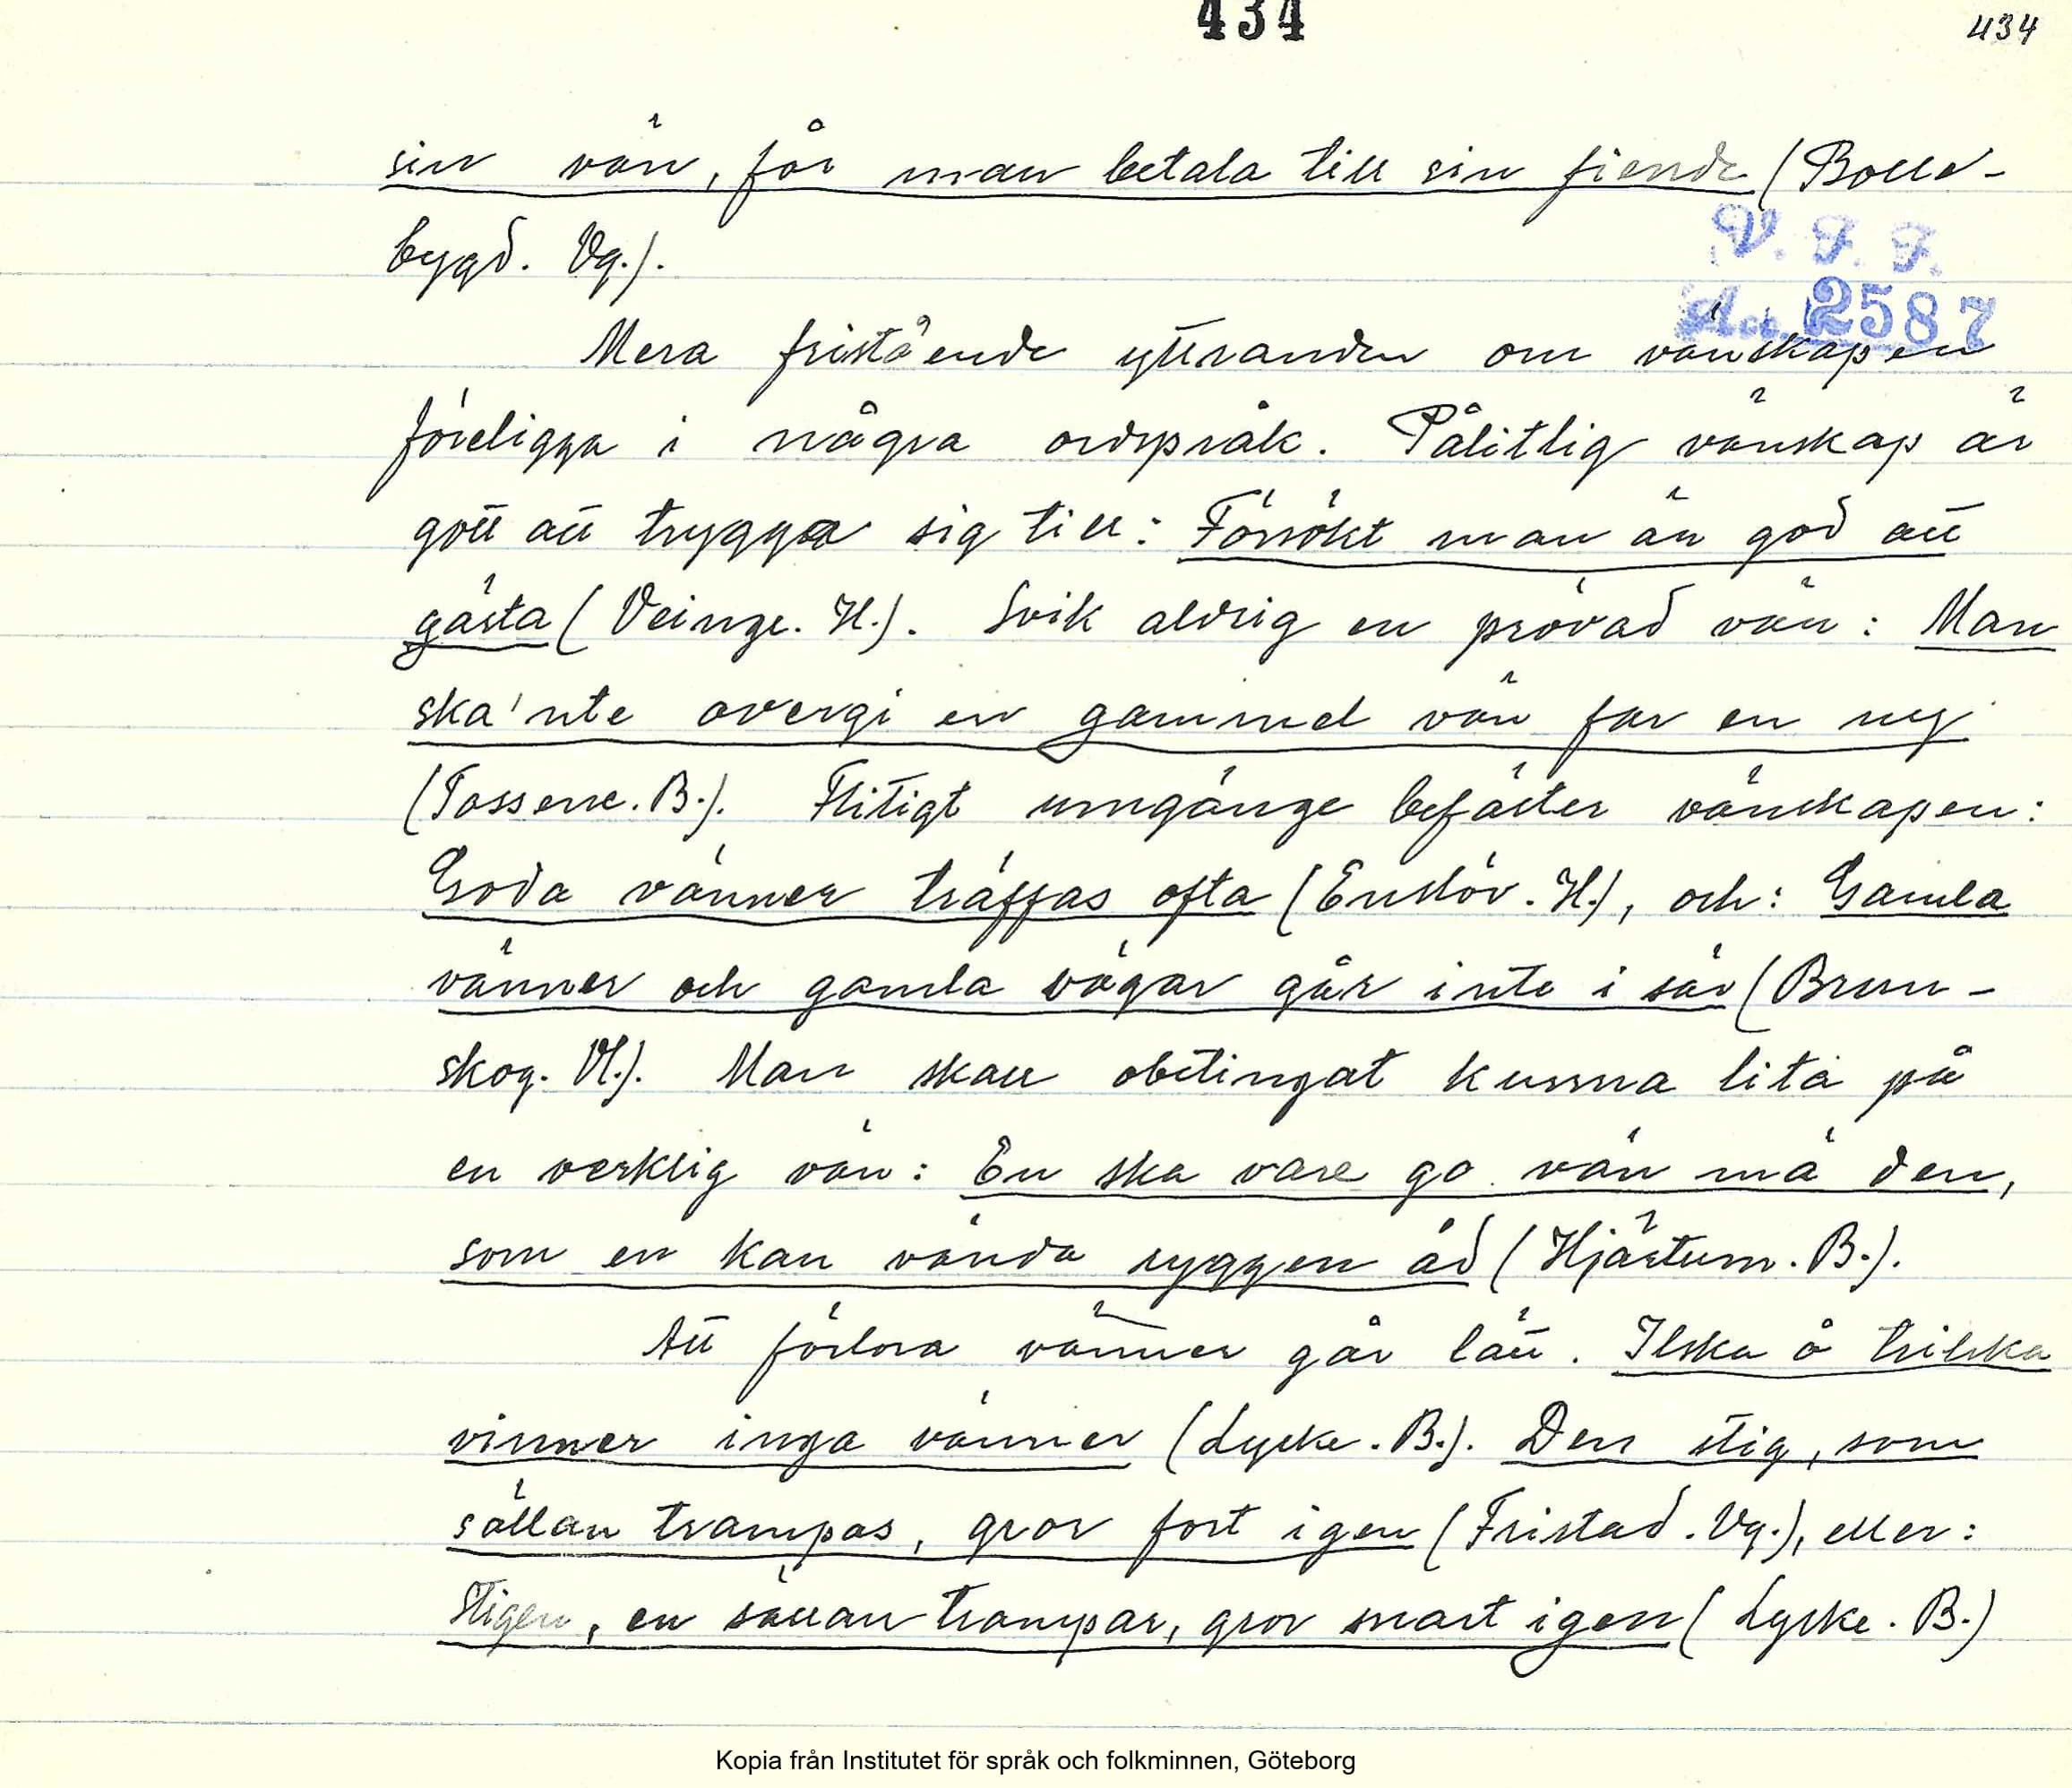 434
434
sin vän, får man betala till sin fiende (Bolle-
bygd. Vg.).
V. F. F.
Acc. 2587
Mera fristående yttranden om vänskapen
föreligga i några ordspråk. Pålitlig vänskap är
gott att trygga sig till: Försökt man än god att
gästa (Veinge. H.). Svik aldrig en prövad vän: Man
ska'nte overgi en gammel vän far en ny
(Tossene. B.). Flitigt umgänge befäster vänskapen:
Goda vänner träffas ofta (Enslöv. H.), och: Gamla
vänner och gamla vägar går inte i sär (Brun-
skog. Vl.). Man skall obetingat kunna lita på
en verklig vän: En ska vare go vän mä den,
som en kan vända ryggen åd (Hjärtum. B.).
Att förlora vänner går lätt. Ilska å trilska
vinner inga vänner (Lycke. B.). Den stig, som
sällan trampas, gror fort igen (Fristad. Vg.), eller:
Stigen, en sällan trampar, gror snart igen (Lycke. B.)
Kopia från Institutet för språk och folkminnen, Göteborg